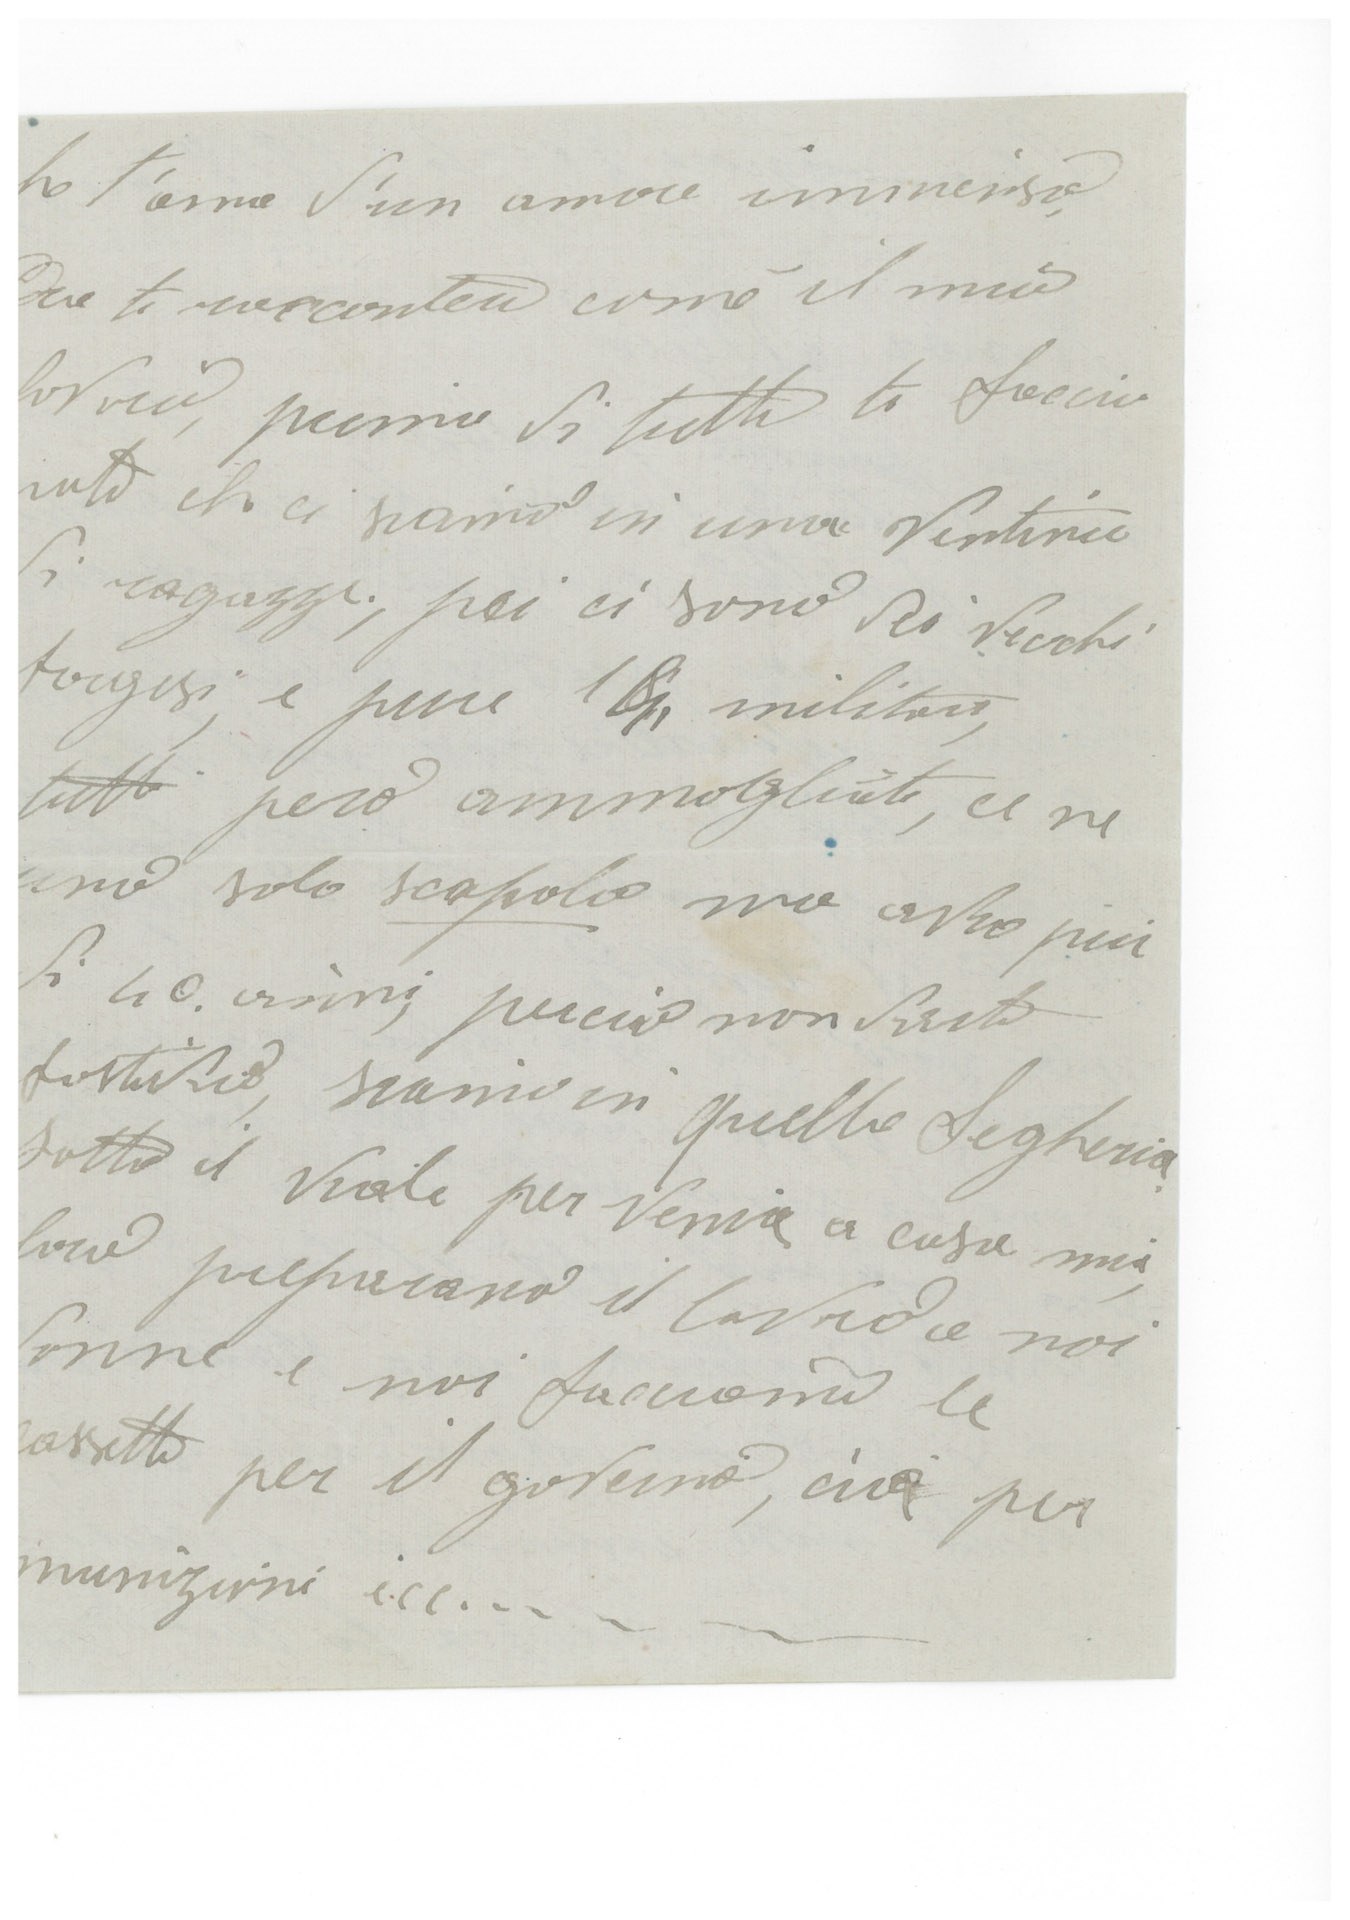 ho t'amo d'un amore immenso,
Ora ti racconterò come il mio
lavoro, prima di tutto ti faccio
noto ch ci siamo in una ventina
di ragazze, poi ci sono dei vecchi
borgesi, e pure 18 militari,
tutti però ammogliati, ce ne
uno solo scapolo ma avrà più
di 40. anni, perciò non
siamo in quella Segheria
sotto il viale per venire a casa mia,
loro preparano il lavoro a noi
donne e noi facciamo le
cassette per il governo, cioè per
munizioni ecc....